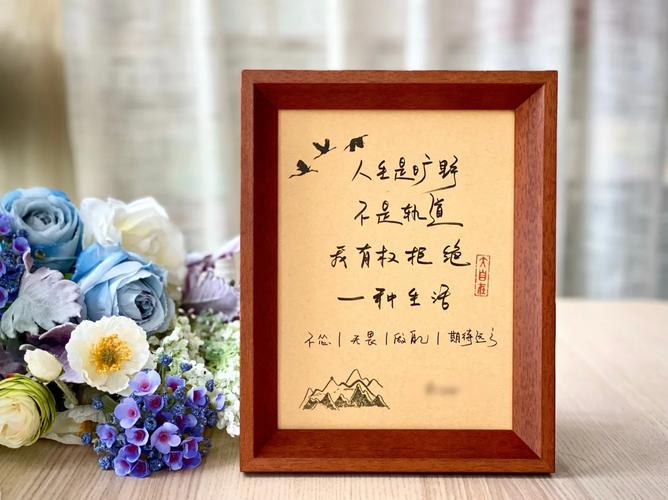 人生是旷野
不是轨道
我有权拒绝
一种生活
大自在
不怂 | 无畏 | 放肆 | 期待远方